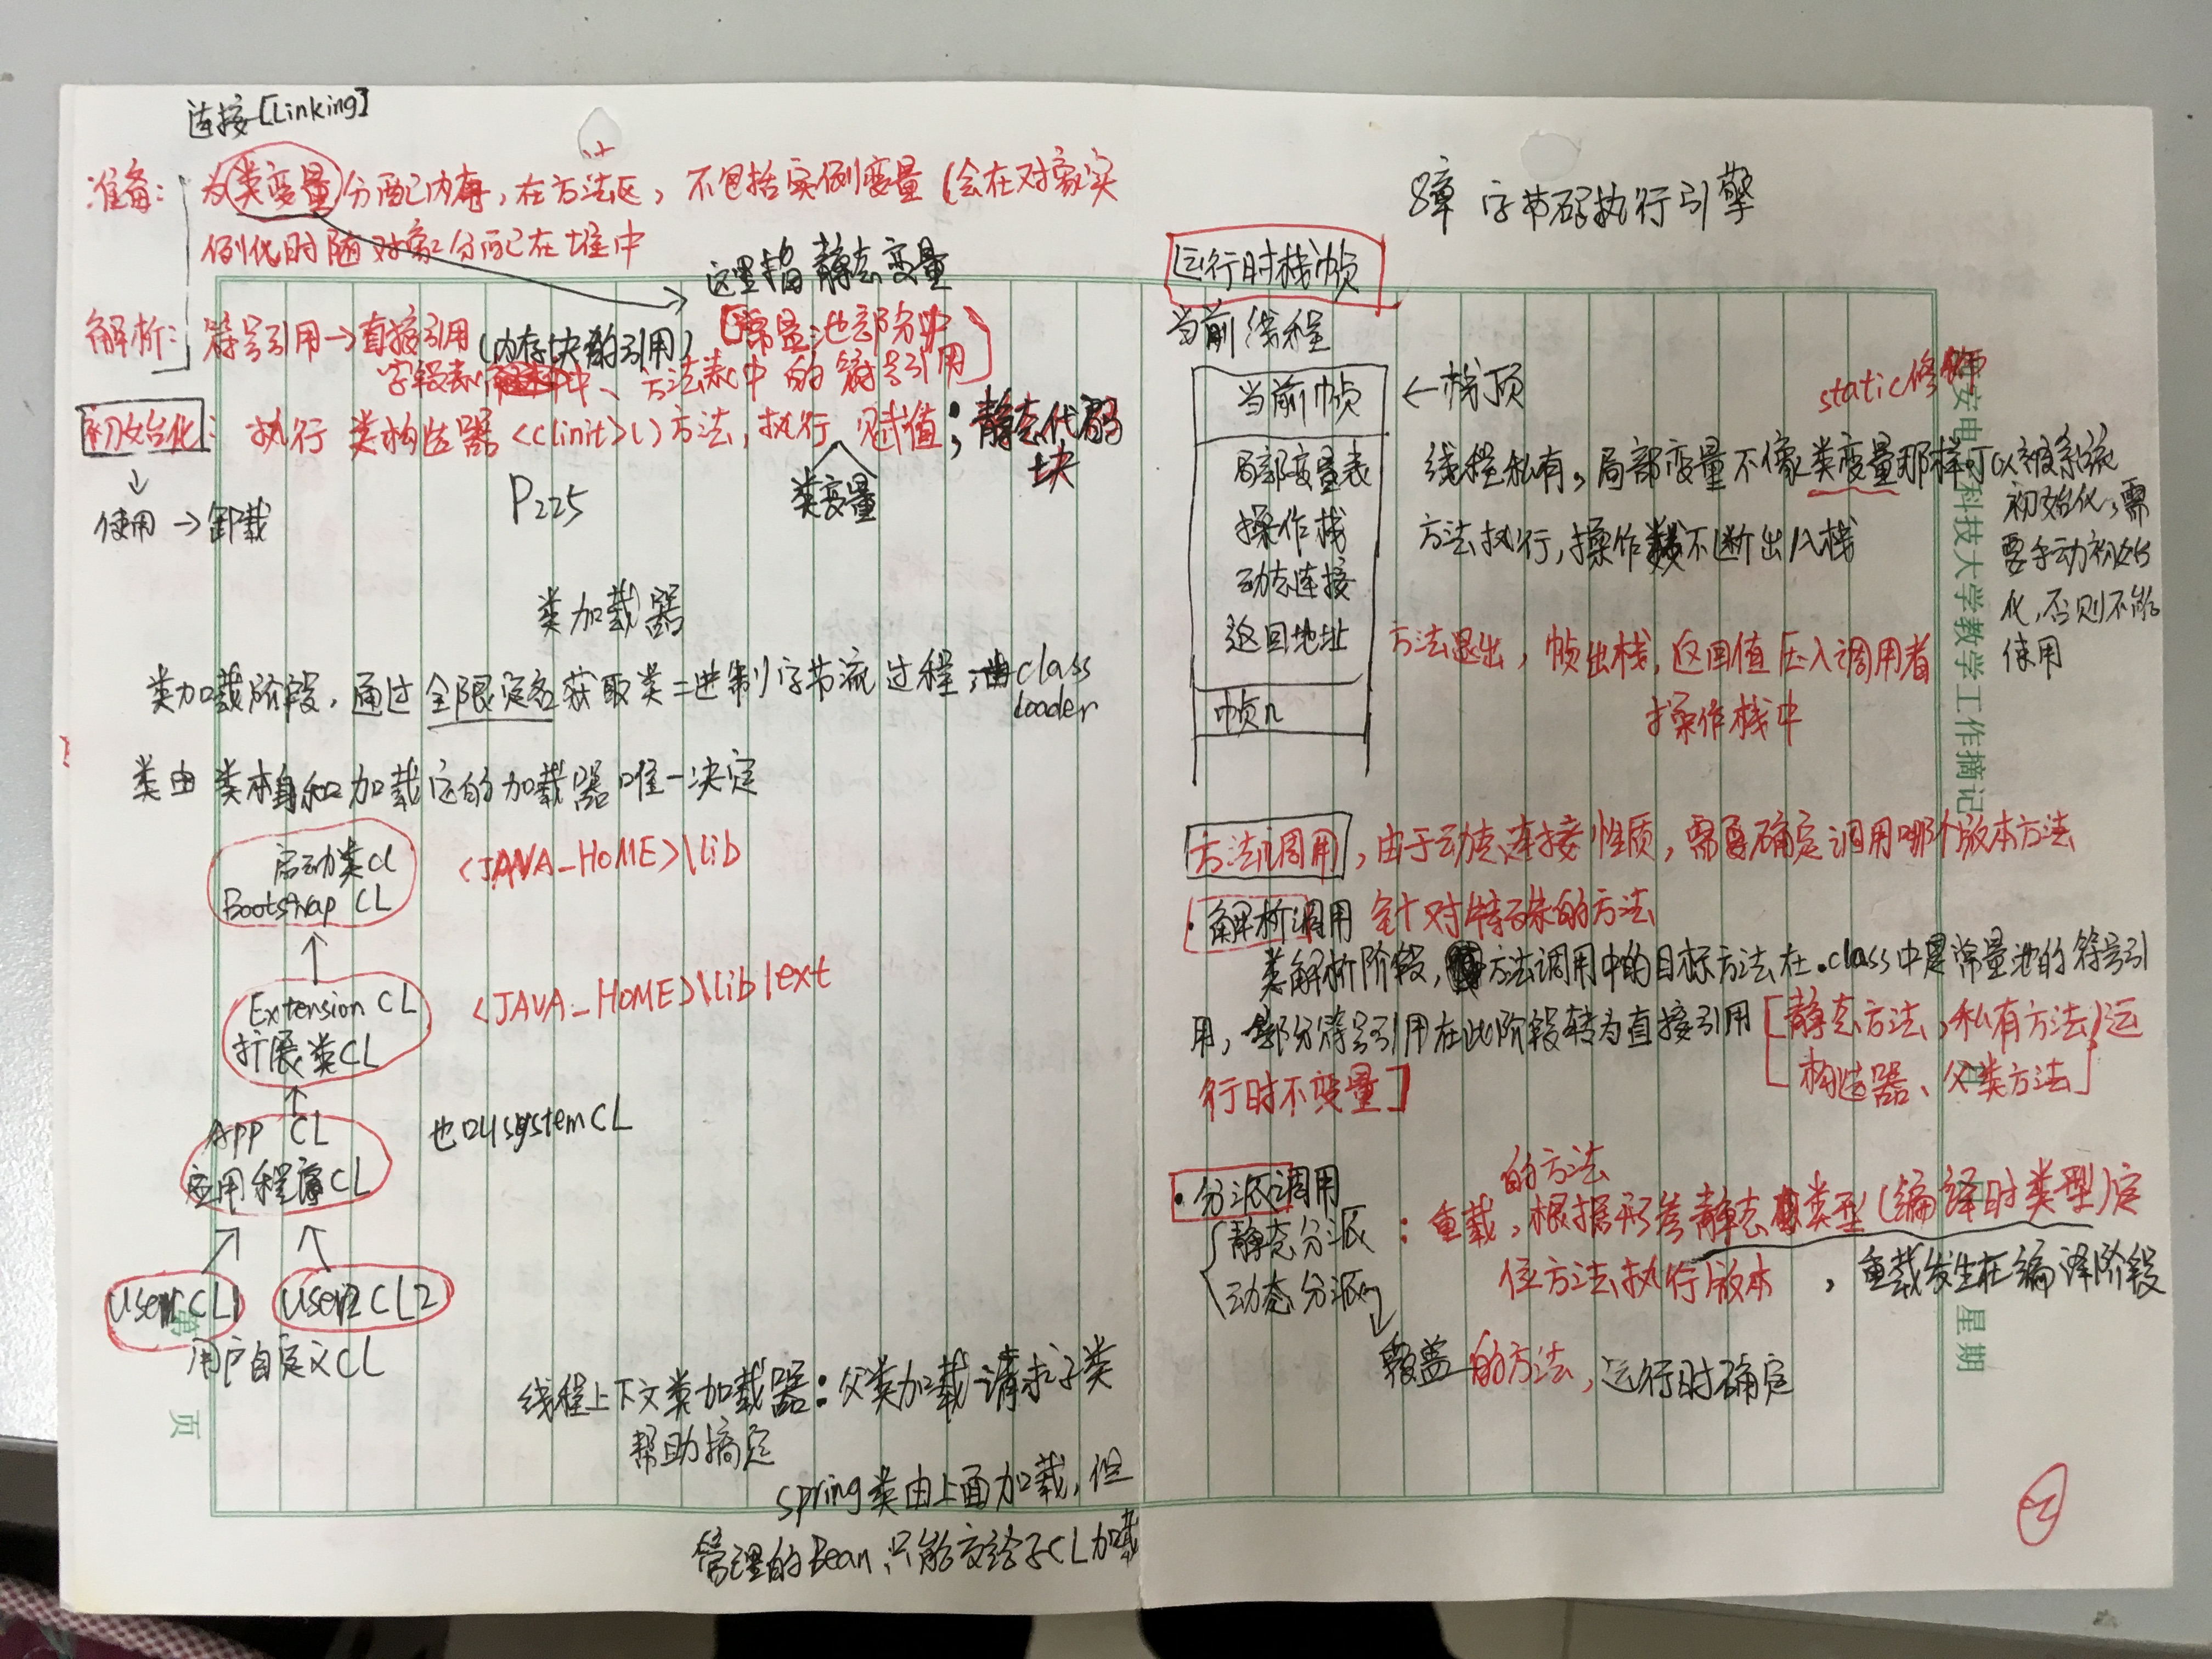 连接[Linking]
准备: 为类变量分配内存, 在方法区, 不包括实例变量 (会在对象实
例化时随对象分配在堆中
这里指静态变量
解析: 符号引用→直接引用 (内存块的引用) [常量池部分中
字段表中、方法表中的符号引用]
初始化: 执行 类构造器 <clinit>()方法, 执行 赋值; 静态代码
块
类变量
↓
使用 → 卸载
P225
类加载器
类加载阶段, 通过全限定名获取类二进制字节流过程, 由class
loader
类由 类本身和加载它的加载器唯一决定
启动类cl
Bootstrap CL
<JAVA_HOME>\lib
↑
Extension CL
扩展类CL
<JAVA_HOME>\lib\ext
↑
App CL
应用程序CL
也叫systemCL
User CL1
User2 CL2
用户自定义CL
线程上下文类加载器: 父类加载请求子类
帮助搞定
spring类由上面加载, 但
管理的Bean, 只能交给子CL加载
第
页
8章 字节码执行引擎
运行时栈帧
当前线程
当前帧
←栈顶
static修饰
局部变量表
线程私有。局部变量不像类变量那样可以被系统
初始化, 需
要手动初始
化, 否则不能
使用
操作栈
方法执行, 操作数不断出/入栈
动态连接
返回地址
方法退出, 帧出栈, 返回值压入调用者
操作栈中
帧n
方法调用, 由于动态连接性质, 需要确定调用哪个版本方法
·解析调用 针对特殊的方法
类解析阶段, 方法调用中的目标方法在.class中是常量池的符号引
用, 一部分符号引用在此阶段转为直接引用 [静态方法, 私有方法, 运
构造器、父类方法]
行时不变量]
·分派调用
的方法
静态分派 : 重载, 根据形参静态类型(编译时类型)定
位方法执行版本, 重载发生在编译阶段
动态分派
覆盖的方法, 运行时确定
安电
科技大学教学工作摘记
星期
②